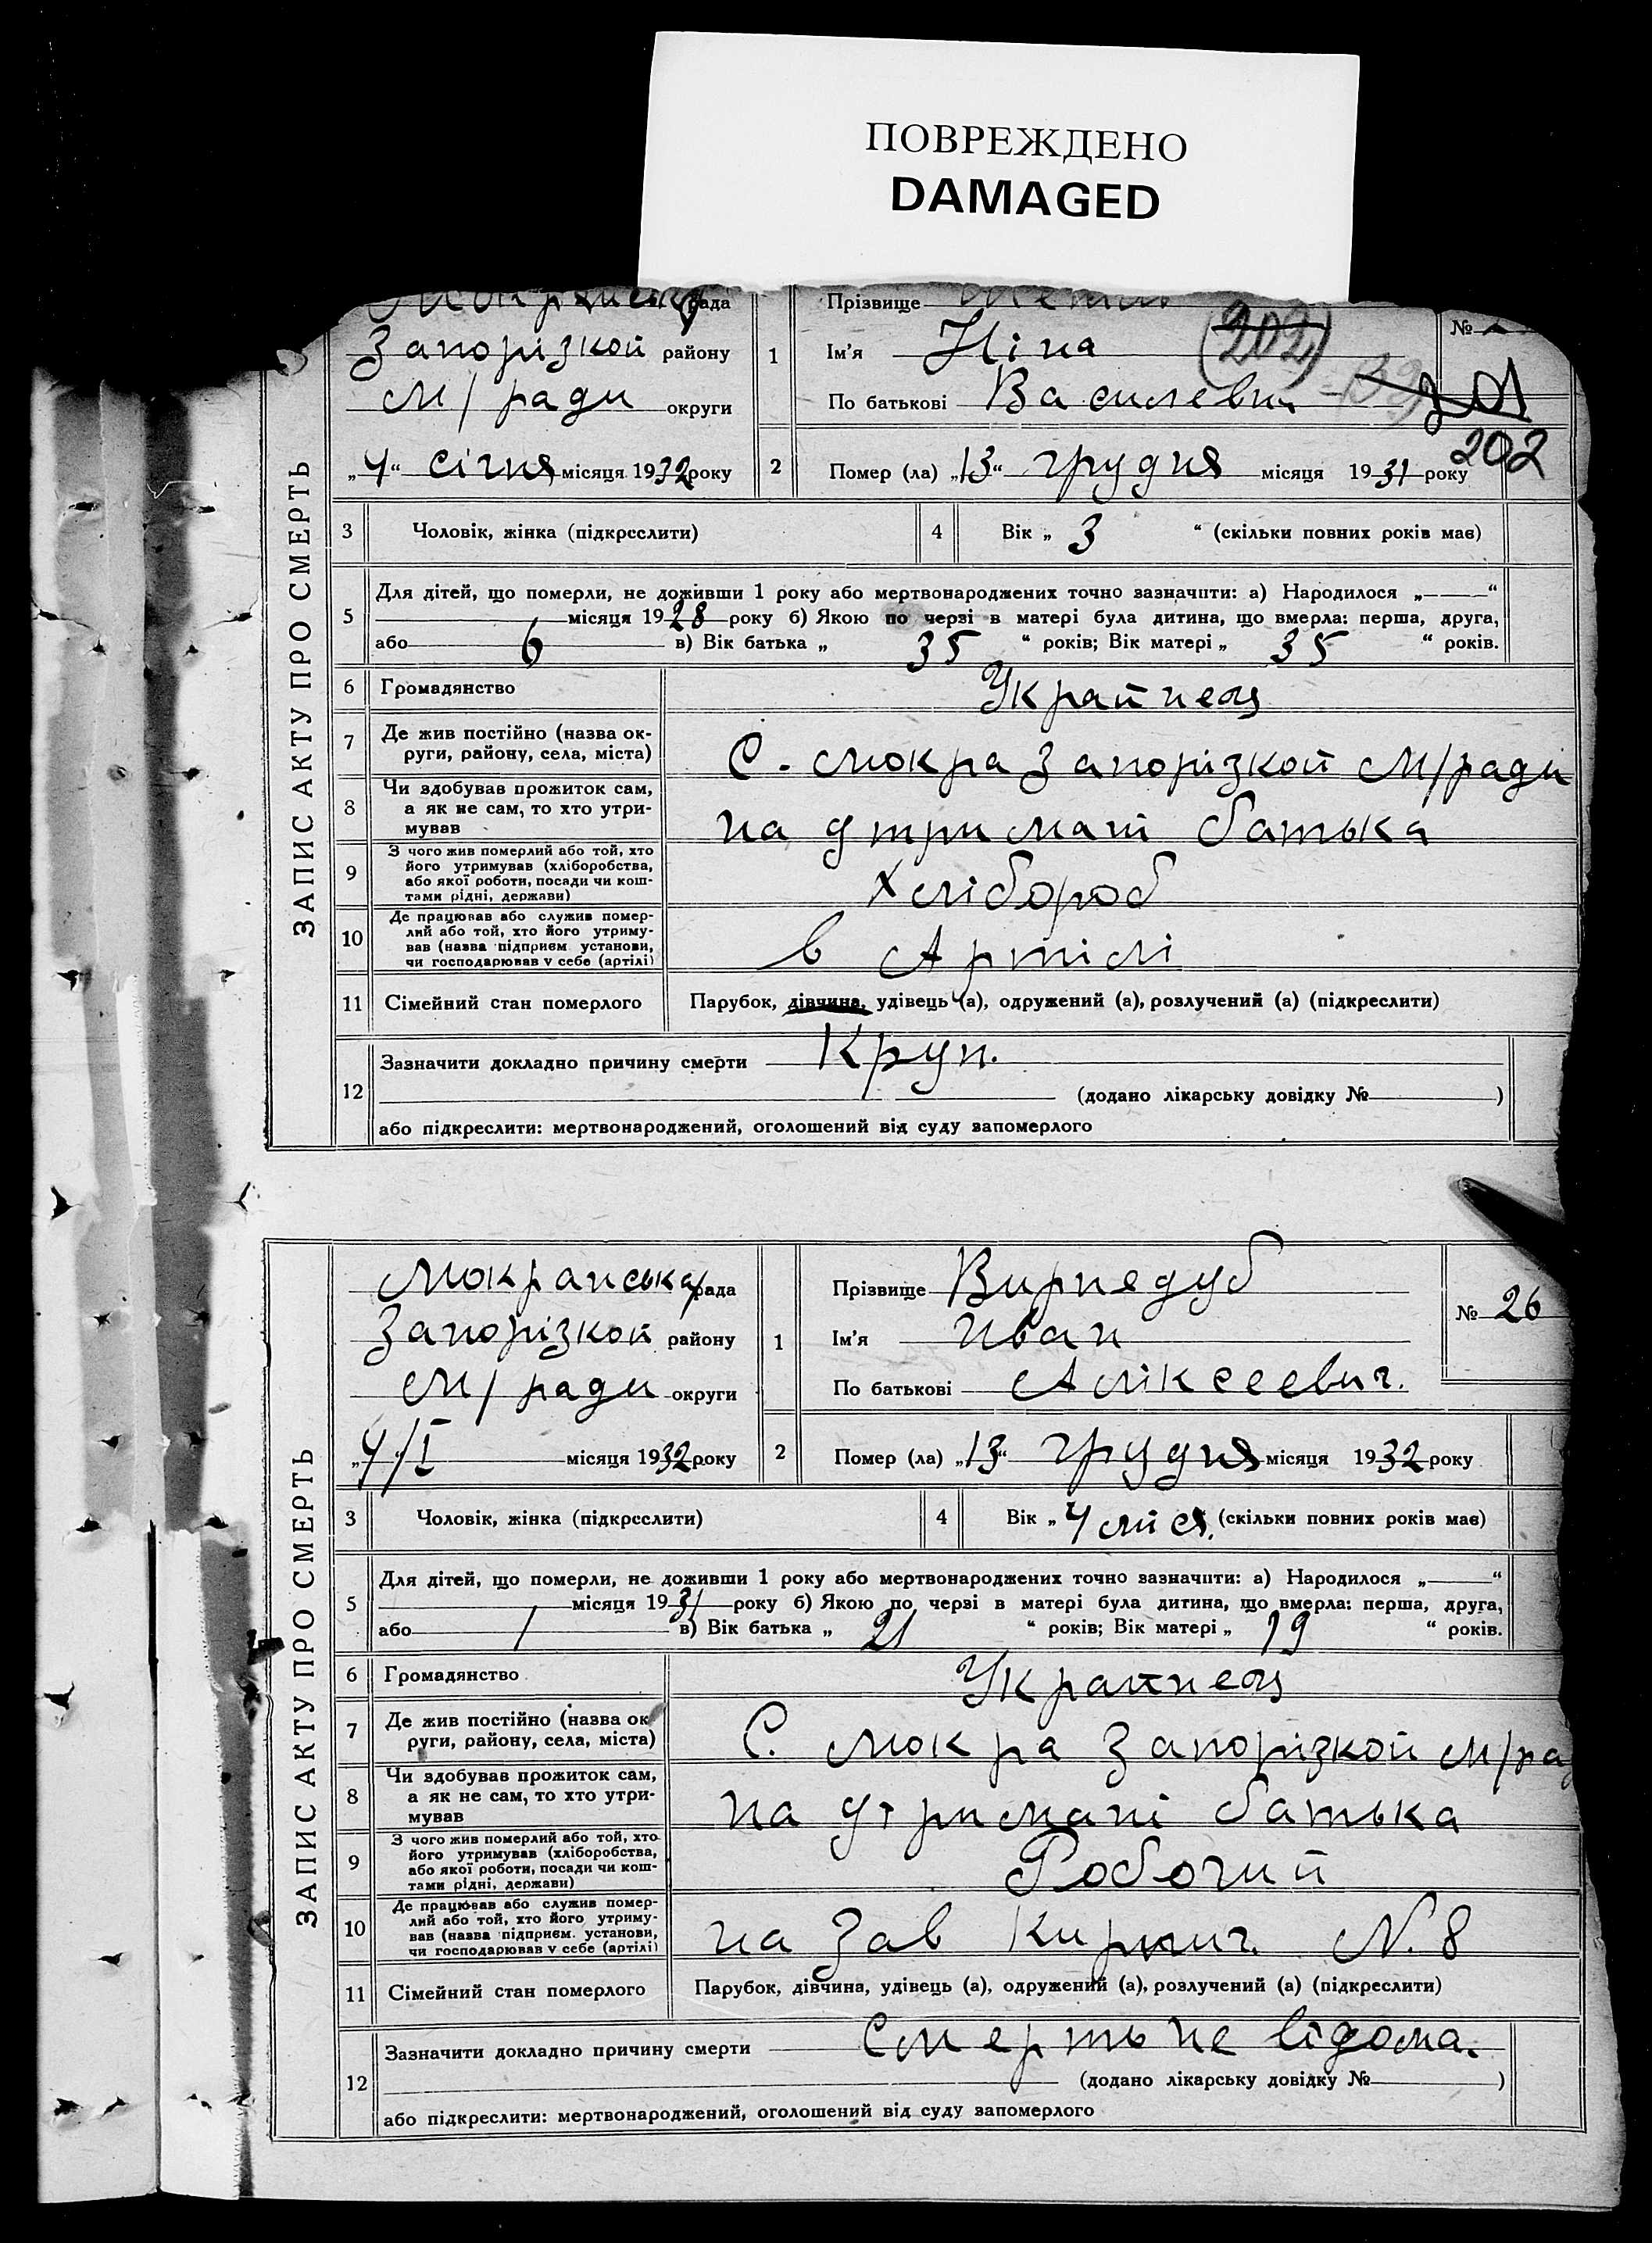 ПОВРЕЖДЕНО
DAMAGED
ЗАПИС АКТУ ПРО СМЕРТЬ
рада
Запорізкой району
м/ради округи
„4“ січня місяця 1932 року
1
Прізвище
Ім’я Ніна
(202)
№
По батькові Василевн
201
202
2
Помер (ла) „13“ грудня місяця 1931 року
3 Чоловік, жінка (підкреслити)
4 Вік „ 3 “ (скільки повних років має)
5 Для дітей, що померли, не доживши 1 року або мертвонароджених точно зазначити: а) Народилося „——“
місяця 1928 року б) Якою по черзі в матері була дитина, що вмерла: перша, друга,
або 6 в) Вік батька „ 35 “ років; Вік матері „ 35 “ років.
6 Громадянство Украпнець
7 Де жив постійно (назва ок-
руги, району, села, міста)
С. Мокра Запорізкой М/ради
8 Чи здобував прожиток сам,
а як не сам, то хто утри-
мував
на утримані батька
9 З чого жив померлий або той, хто
його утримував (хліборобства,
або якої роботи, посади чи кош-
тами рідні, держави)
Хлібороб
10 Де працював або служив помер-
лий або той, хто його утриму-
вав (назва підприєм. установи,
чи господарював у себе (артілі)
в Артілі
11 Сімейний стан померлого Парубок, дівчина, удівець (а), одружений (а), розлучений (а) (підкреслити)
12 Зазначити докладно причину смерти Круп.
(додано лікарську довідку № )
або підкреслити: мертвонароджений, оголошений від суду запомерлого
ЗАПИС АКТУ ПРО СМЕРТЬ
Мокранська рада
Запорізкой району
М/ ради округи
„4/I місяця 1932 року
1
Прізвище Вирнедуб
Ім’я Иван
По батькові Аліксеевич.
№ 26
2
Помер (ла) „13“ грудня місяця 1932 року
3 Чоловік, жінка (підкреслити)
4 Вік „ 4 міся. (скільки повних років має)
5 Для дітей, що померли, не доживши 1 року або мертвонароджених точно зазначити: а) Народилося „——“
місяця 1931 року б) Якою по черзі в матері була дитина, що вмерла: перша, друга,
або 1 в) Вік батька „ 21 “ років; Вік матері „ 19 “ років.
6 Громадянство Украпнець
7 Де жив постійно (назва ок
руги, району, села, міста)
С. Мокра Запорізкой м/рад
8 Чи здобував прожиток сам,
а як не сам, то хто утри-
мував
на утримані батька
9 З чого жив померлий або той, хто
його утримував (хліборобства,
або якої роботи, посади чи кош-
тами рідні, держави)
Робочий
10 Де працював або служив помер-
лий або той, хто його утриму-
вав (назва підприєм. установи,
чи господарював у себе (артілі)
на Зав Кирпич. N. 8
11 Сімейний стан померлого Парубок, дівчина, удівець (а), одружений (а), розлучений (а) (підкреслити)
12 Зазначити докладно причину смерти Смерть не відома.
(додано лікарську довідку № )
або підкреслити: мертвонароджений, оголошений від суду запомерлого